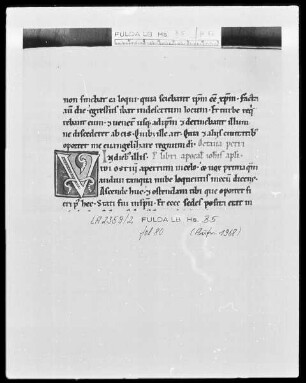 FULDA LB Hs.
non sinebat ea loqui. quia sciebant ipm ee xpm. Facta
aut die egressus ibat in desertum locum. Et turbe req
rebant eum. & uener usq ad ipm. & detinebant illum
ne discederet ab eis. Quib' ille ait. Quia & aliis ciuitatib'
oportet me euangelizare regnum di.
In dieb' illis. libri apocal' iohis apli
VIDI ostiu apertum in celo. & uox prima qua
audiui tanqua tube loquentis mecu dicens
Ascende huc & ostendam tibi que oportet fi
eri p' hec. Stati fui in spu. Et ecce sedes posita erat in
LA 2369/2 FULDA LB Hs. B5
fol 80
(1968)